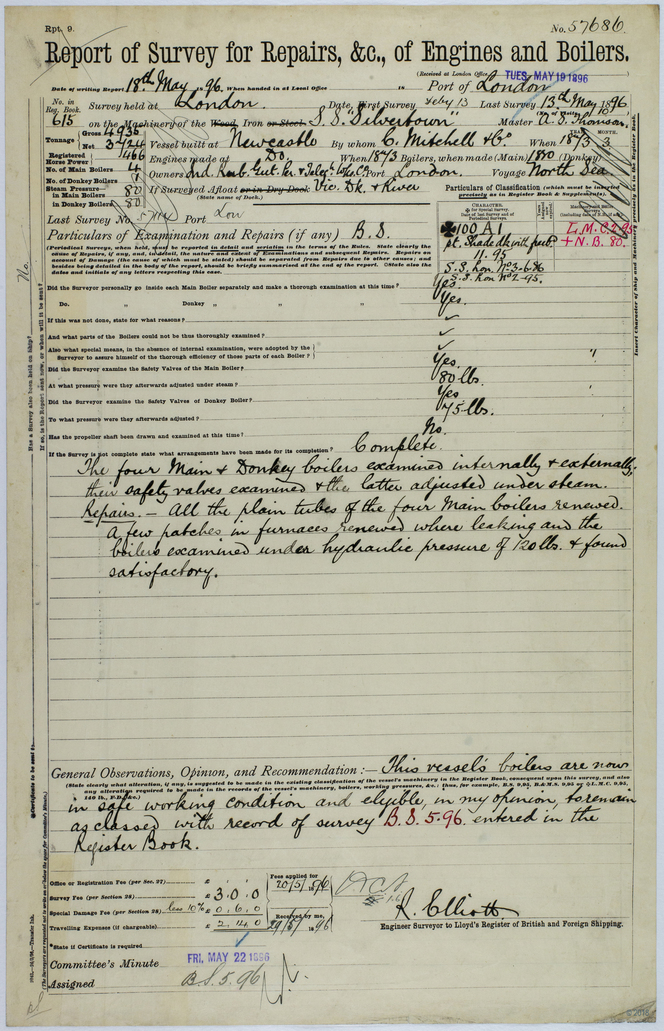 Rpt. 9.
No. 57686.
Report of Survey for Repairs, &c., of Engines and Boilers.
(Received at London Office TUES. MAY 19 1896
Date of writing Report 18th May 96. When handed in at Local Office 18 Port of London
No. in Reg. Book. 615
Survey held at London. Date, First Survey Feby 13 Last Survey 13th May 1896.
on the Machinery of the Wood, Iron or Steel. S.S. "Silvertown" Master A. S. Thomson.
Tonnage Gross 4936 Net 3724
Vessel built at Newcastle By whom C. Mitchell & Co. When 1873 YEAR. MONTH. 3
Registered Horse Power 466
Engines made at Do. When 1873 Boilers, when made (Main) 1880 (Donkey)
No. of Main Boilers 4
No. of Donkey Boilers 1
Owners Port London. Voyage North Sea
Steam Pressure in Main Boilers 80
in Donkey Boilers 80
If Surveyed Afloat or in Dry Dock Vic. Dk. & River
(State name of Dock.)
Particulars of Classification (which must be inserted precisely as in Register Book & Supplements).
Last Survey No. Port Lon
Particulars of Examination and Repairs (if any) B.S.
(Periodical Surveys, when held, must be reported in detail and seriatim in the terms of the Rules. State clearly the
cause of Repairs, if any, and, in detail, the nature and extent of Examinations and subsequent Repairs. Repairs on
account of Damage (the cause of which must be stated) should be separated from Repairs due to other causes; and
besides being detailed in the body of the report, should be briefly summarised at the end of the report. State also the
dates and initials of any letters respecting this case.
✠100 A1
11.95
S.S. Lon. No3-6.86
S.S. Lon. No2-95.
L.M.C. 2.95
+ N.B. 80.
Did the Surveyor personally go inside each Main Boiler separately and make a thorough examination at this time? Yes.
Do. " Donkey " " " Yes.
If this was not done, state for what reasons? ✓
And what parts of the Boilers could not be thus thoroughly examined? ✓
Also what special means, in the absence of internal examination, were adopted by the
Surveyor to assure himself of the thorough efficiency of those parts of each Boiler? ✓
Did the Surveyor examine the Safety Valves of the Main Boiler? Yes
At what pressure were they afterwards adjusted under steam? 80 lbs.
Did the Surveyor examine the Safety Valves of Donkey Boiler? Yes
To what pressure were they afterwards adjusted? 75 lbs.
Has the propeller shaft been drawn and examined at this time? No.
If the Survey is not complete state what arrangements have been made for its completion? Complete.
The four Main & Donkey boilers examined internally & externally;
their safety valves examined & the latter adjusted under steam.
Repairs. — All the plain tubes of the four Main boilers renewed.
A few patches in furnaces renewed where leaking and the
boilers examined under hydraulic pressure of 120 lbs. & found
satisfactory.
General Observations, Opinion, and Recommendation:— This vessel's boilers are now
(State clearly what alteration, if any, is suggested to be made in the existing classification of the vessel's machinery in the Register Book, consequent upon this survey, and also
any alteration required to be made in the records of the vessel's machinery, boilers, working pressures, &c.; thus, for example, B.S. 9,95, B.&M.S. 9,95 or L.M.C. 9,95,
140 lb., F.D. &c.)
in safe working condition and eligible, in my opinion, to remain
as classed with record of survey B.S. 5.96. entered in the
Register Book.
Office or Registration Fee (per Sec. 27) £
Survey Fee (per Section 28) £ 3.0.0
Special Damage Fee (per Section 28) less 10% £ 0.6.0
Travelling Expenses (if chargeable) £ 2.14.0
Fees applied for 20/5/1896
Received by me, 29/5/1896
R. Elliott.
Engineer Surveyor to Lloyd's Register of British and Foreign Shipping.
State if Certificate is required
Committee's Minute FRI. MAY 22 1896
Assigned B.S. 5.96
Insert Character of Ship and Machinery precisely as in the Register Book.